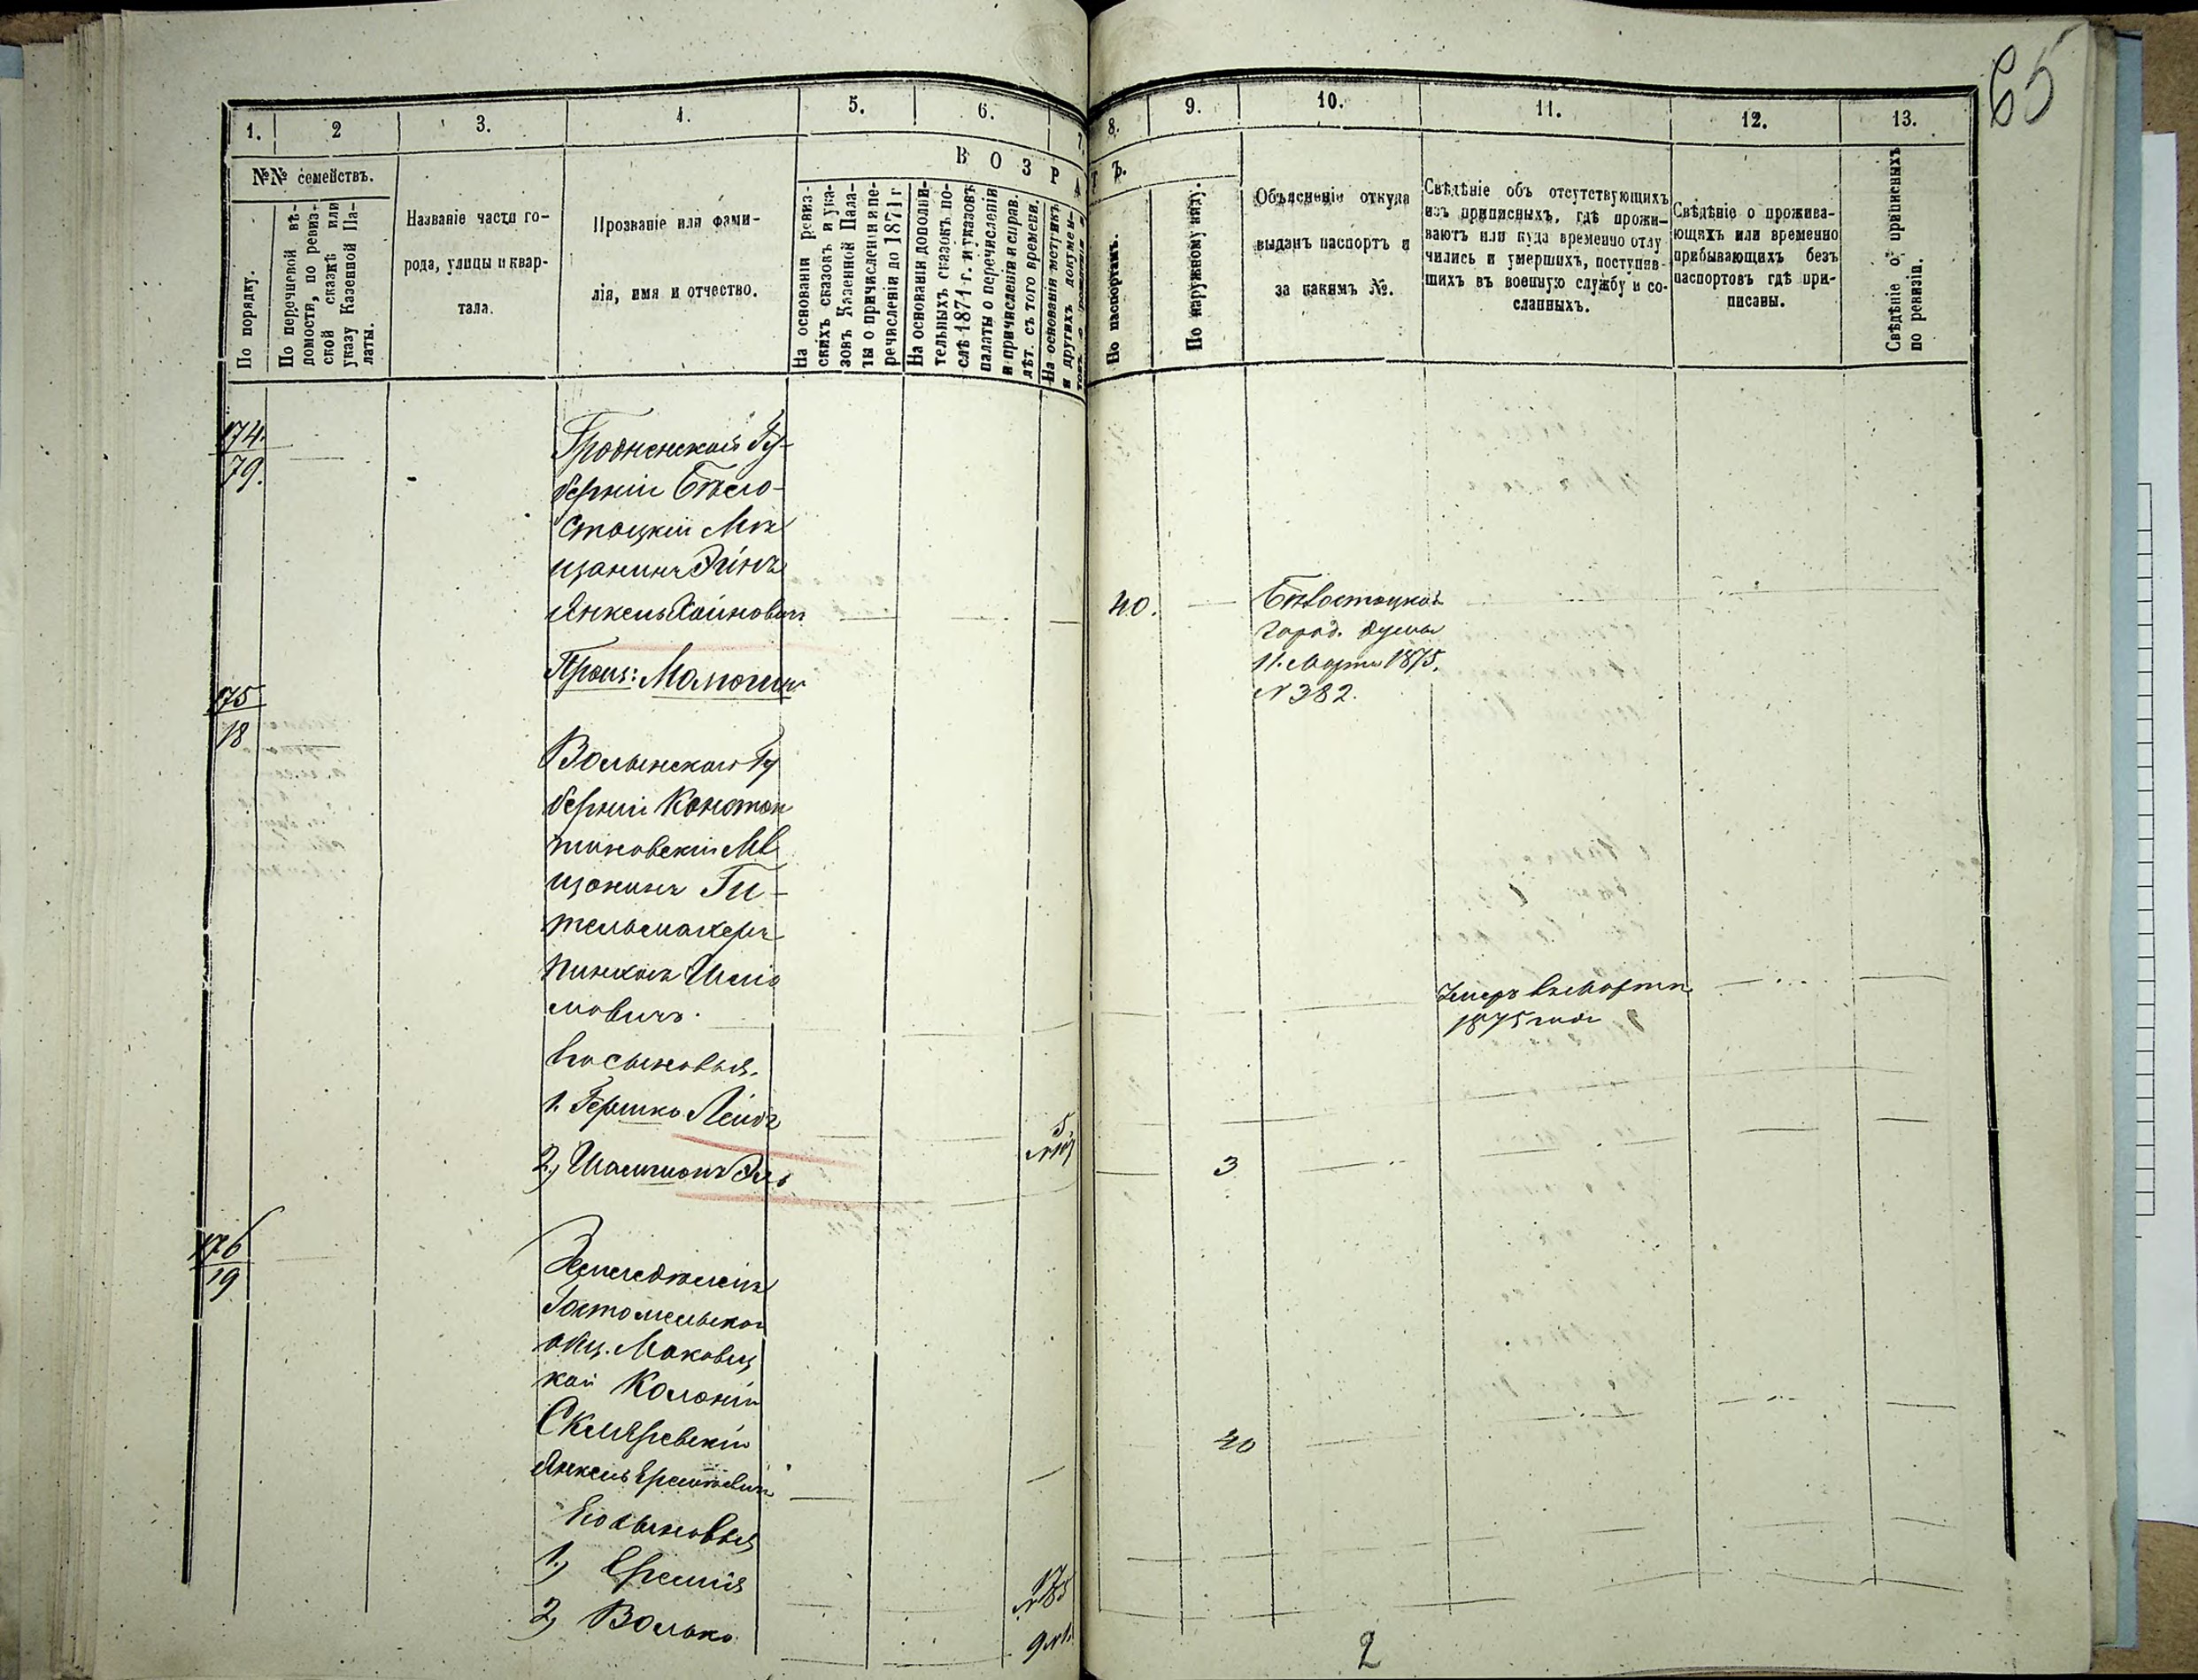 65
1.
2
3.
4.
5.
6.
7
8.
9.
10.
11.
12.
13.
№№ семействъ.
По порядку.
По перечневой вѣ-
домости, по ревиз-
ской сказкѣ или
указу Казенной Па-
латы.
Названіе части го-
рода, улицы и квар-
тала.
Прозваніе или фами-
лія, имя и отчество.
ВОЗРА
На основаніи ревиз-
скихъ сказокъ и ука-
зовъ Казенной Пала-
ты о причисленіи и пе-
речисленіи до 1871 г
На основаніи дополни-
тельныхъ сказокъ по-
слѣ 1871 г. и указовъ
палаты о перечисленіи
и причисленіи и справ.
лѣт. съ того времени.
На основаніи метрикъ
и другихъ докумен-
товъ о рожденіи и
ТЪ.
По паспортамъ.
По наружному виду.
Объясненіе откуда
выданъ паспортъ и
за какимъ №.
Свѣдѣніе объ отсутствующихъ
изъ приписныхъ, гдѣ прожи-
ваютъ или куда временно отлу
чились и умершихъ, поступив-
шихъ въ военную службу и со-
сланныхъ.
Свѣдѣніе о прожива-
ющихъ или временно
прибывающихъ безъ
паспортовъ гдѣ при-
писаны.
Свѣдѣніе о приписныхъ
по ревизіи.
174.
79.
Гродненской Гу-
берніи Бѣло-
стоцкій Мѣ
щанинъ Эйнъ
Янкель Хаимовичъ
40.
Бѣлостоцкой
Город. думы
11. Марта 1875.
№ 382.
175
18
Волынской Гу
берніи Констан
тиновскій Мѣ
щанинъ Ги-
тельмахеръ
Пинхасъ Шліо
мовичъ.
Умеръ въ Мартѣ
1875 года
Его сыновья.
1. Гершко Лейбъ
5
2) Шлимонъ Эль
3
176
19
Земледѣлецъ
Гостомельской
общ. Маковец
кой Колоніи
Скляревскій
Янкель Еремѣевичъ
40
Его сыновья
1) Еремія
2) Волько
9
2